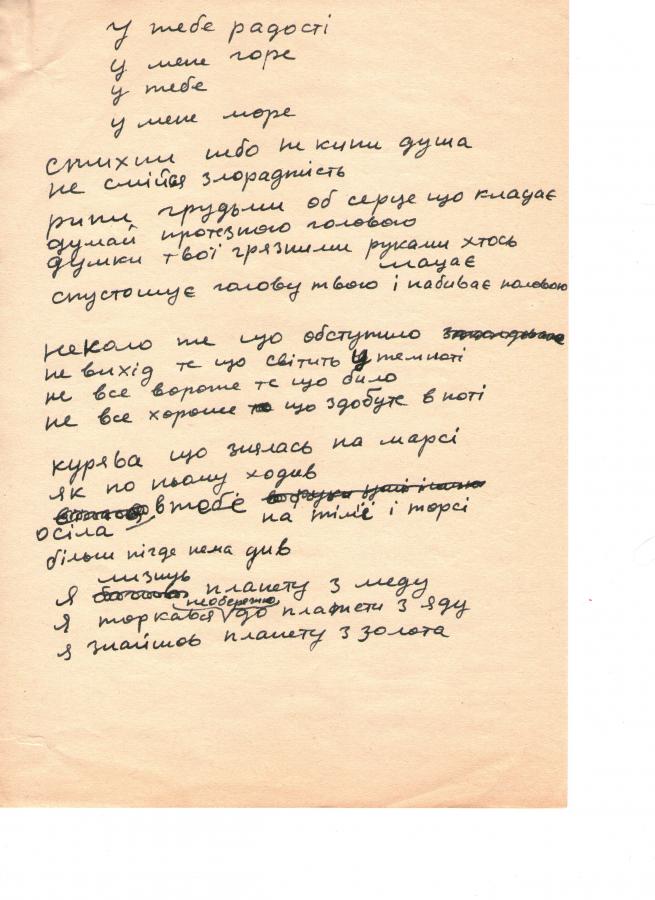 у тебе радості
у мене горе
у тебе
у мене море
стихии небо не кипи душа
не смійся злорадність
рипи грудьми об серце що клацає
думай протезною головою
думки твої грязними руками хтось
мацає
спустошує голову твою і набиває половою
неколо те що обступило
не вихід те що світить у темноті
не все вороже те що било
не все хороше що здобуте в поті
курява що знялась на марсі
як по ньому ходив
осіла в тобі на тімї і торсі
більш нігде нема див
я лизнув планету з меду
я торкався необережно до планети з яду
я знайшов планету з золота